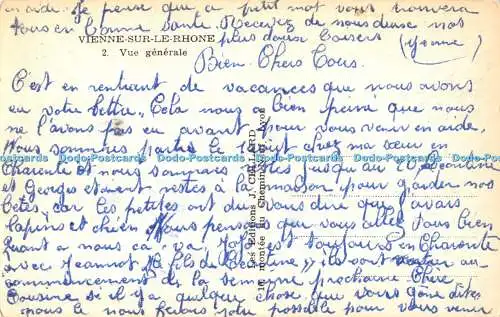 en aide. Je pense que ce petit mot vous trouvera
tous en bonne santé. Recevez de nous deux nos
VIENNE-SUR-LE-RHONE
plus doux baisers
2. Vue générale
(Yvonne)
Bien Chers Tous.
C'est en rentrant de vacances que nous avons
eu votre lettre. Cela nous a bien peiné que nous
ne l'avons pas eu avant pour vous venir en aide.
Nous sommes partis le Août chez ma sœur en
Dodo-Postcards Dodo-Postcards Dodo-Postcards Dodo-Postcards Dodo-Postcards
Charente et nous sommes restés jusqu'au 20
et Georges étaient restés à la maison pour garder nos
bêtes, car les petites ont du vous dire que j'avais
lapins et chien. Nous pensons que vous allez tous bien
Quant a nous ça va. est toujours en Charente
avec Jeannot le fils de ils vont rentrer au
commencement de la semaine prochaine. Chère
Cousine si il y a quelque chose que vous
nous le nous ferons notre possible pour vous venir
Les Editions J. CELLARD
Lyon